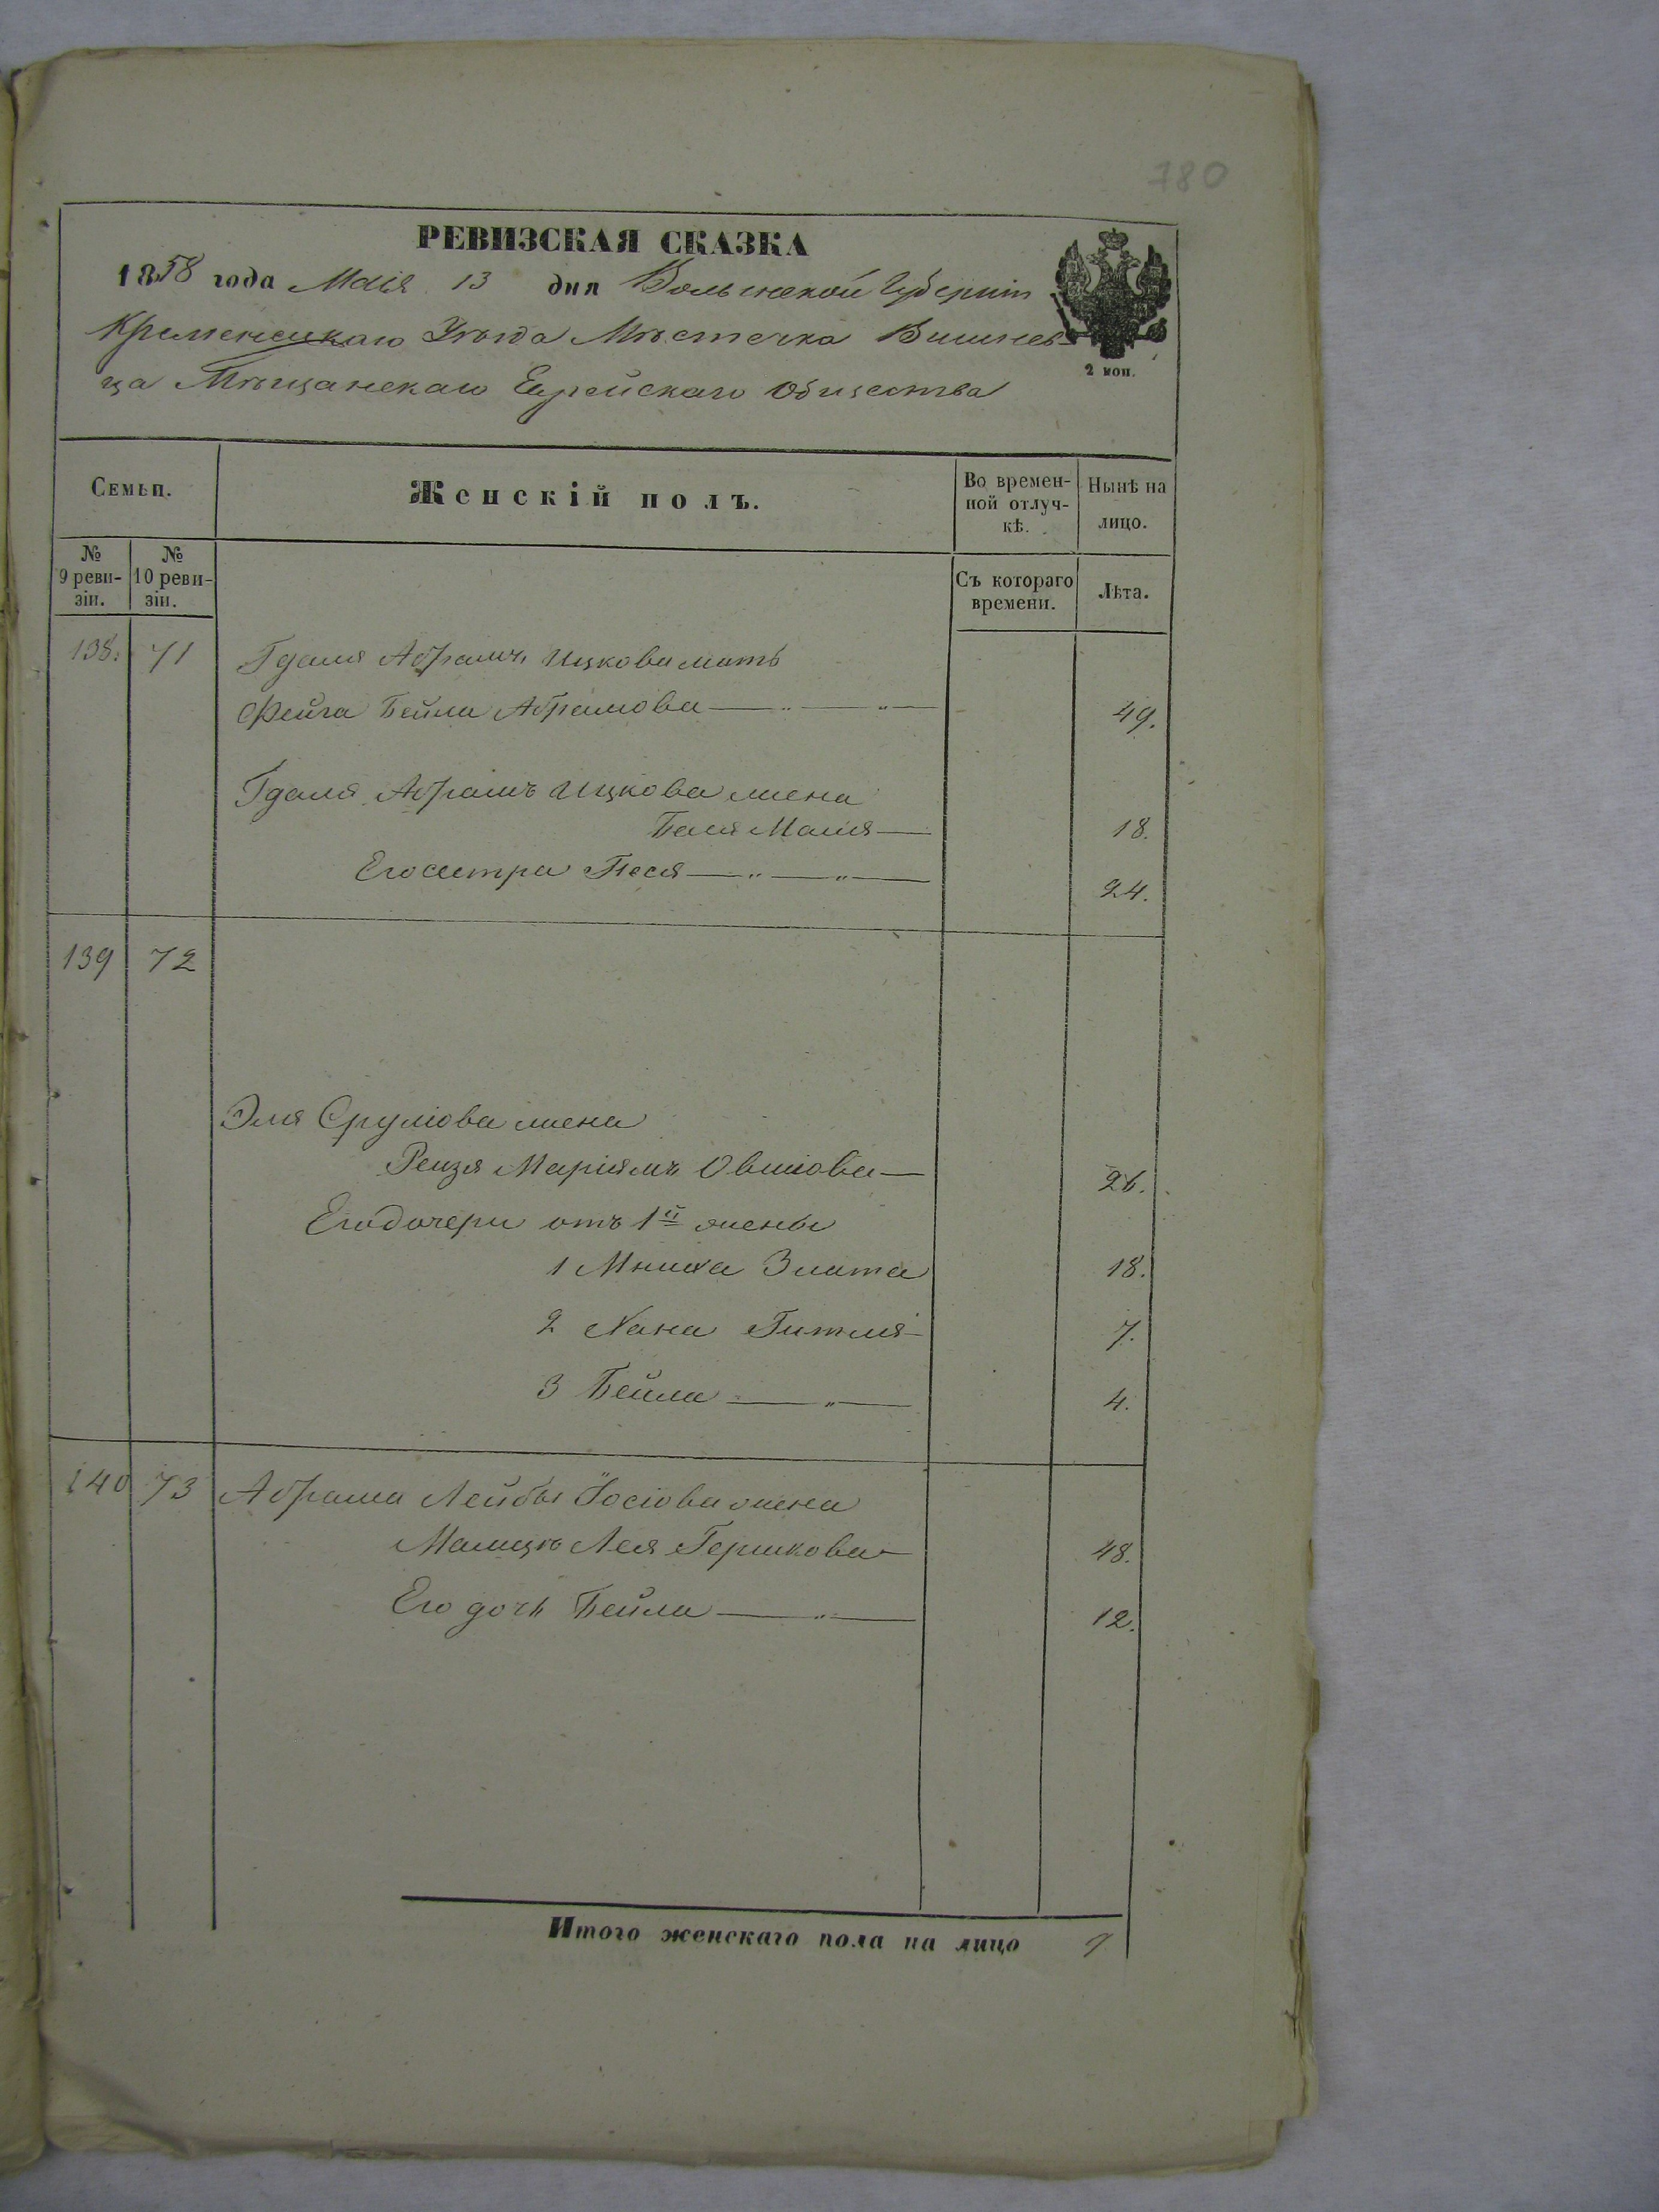 780
РЕВИЗСКАЯ СКАЗКА
1858 года Маія 13 дня Волынской Губерніи
Кременецкаго Уѣзда Мѣстечка Вишнев-
ца Мѣщанскаго Еврейскаго Общества
2 коп.
Семьи.
Женскій полъ.
Во времен-
ной отлуч-
кѣ.
Нынѣ на
лицо.
№
9 реви-
зіи.
№
10 реви-
зіи.
Съ котораго
времени.
Лѣта.
138. 71 Гдаля Абрамъ Ицкова мать
Фейга Бейла Абрамова 49.
Гдаля Абрамъ Ицкова жена
Бася Мася 18.
Его сестра Песя 24.
139 72
Эля Срулiова жена
Рейзя Маріямъ Овшiова 26.
Его дочери отъ 1й жены
1 Мниха Злата 18.
2 Хана Гитля 7.
3 Бейла 4.
140 73 Абрама Лейбы Іосіова жена
Лея Гершкова 48.
Его дочь Бейла 12.
Итого женскаго пола на лицо 9